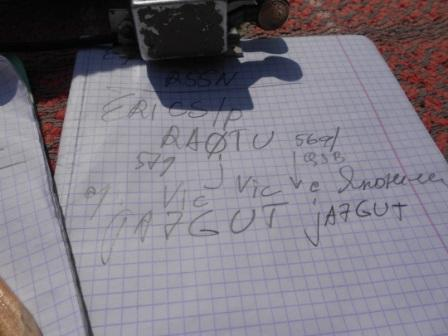 RSSN
ER1CS/p
RAØTU 569/
579 j QSB
Vic Vic с Японии
jA7GUT jA7GUT